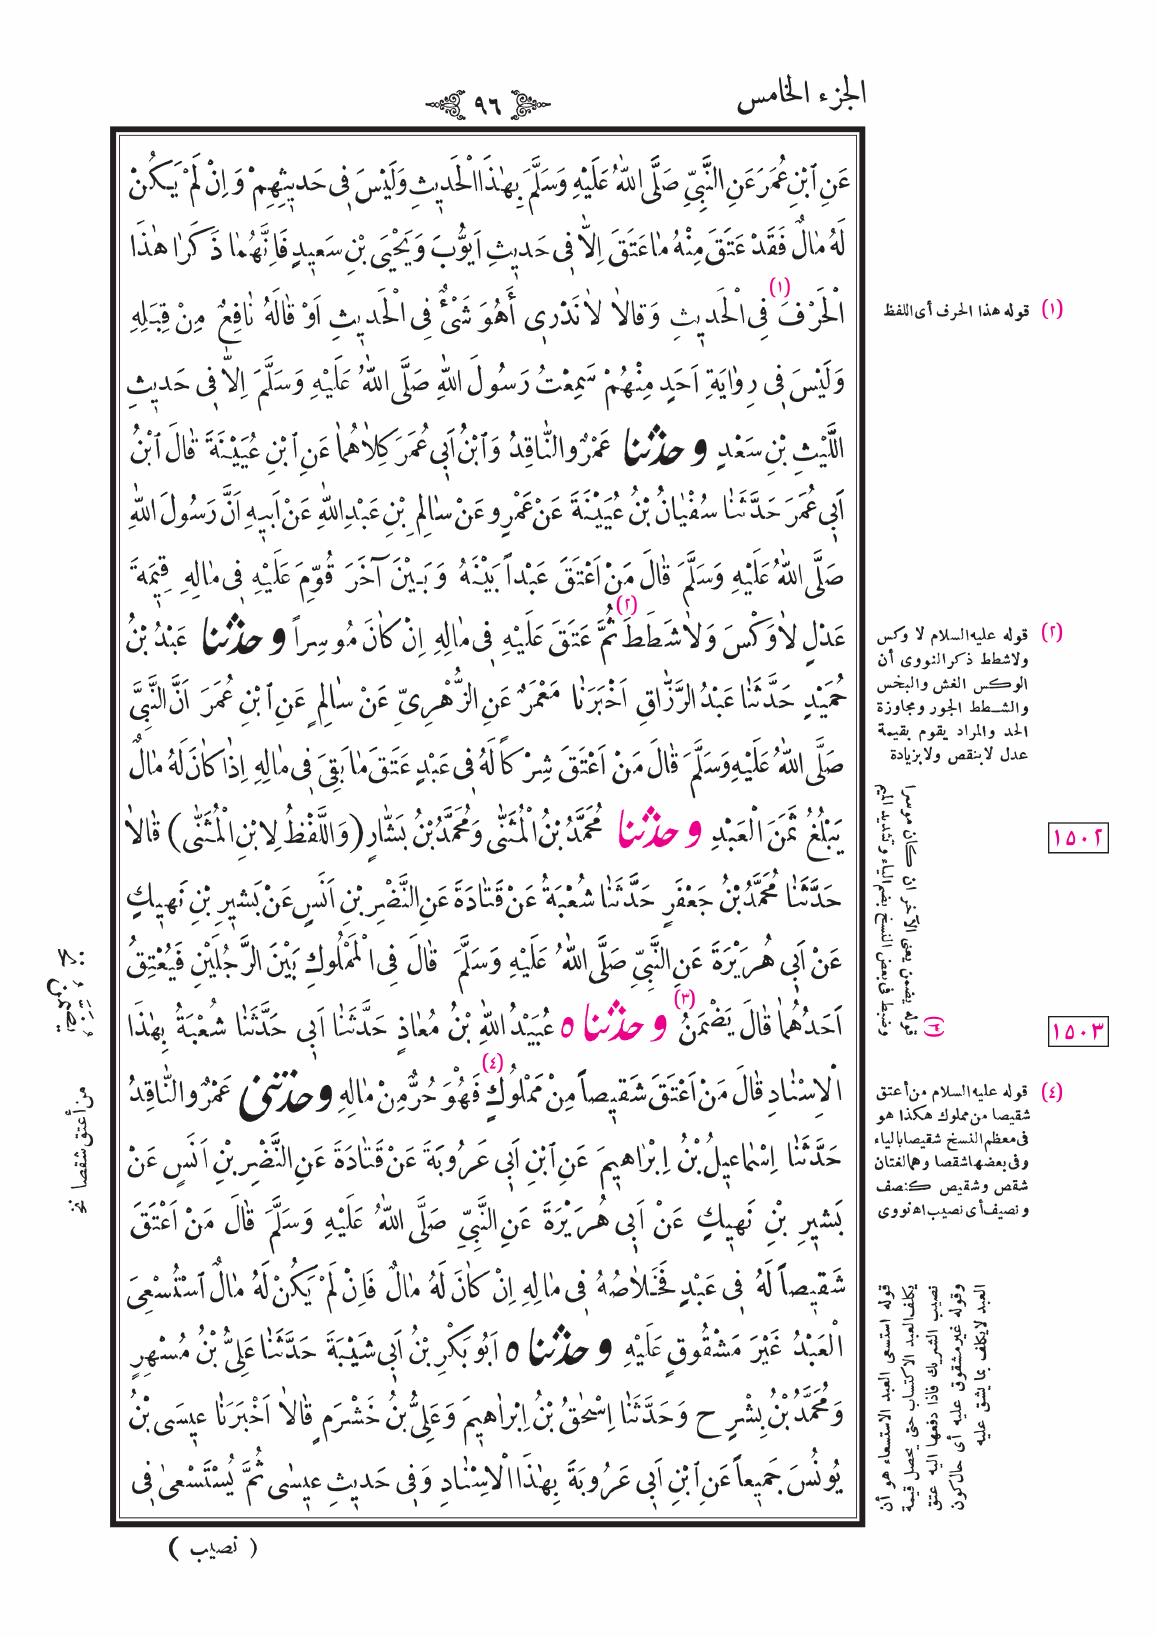 الجزء الخامس
٩٦
عَنِ ٱبْنِ عُمَرَ عَنِ النَّبِيِّ صَلَّى اللهُ عَلَيْهِ وَسَلَّمَ بِهٰذَا الْحَدِيثِ وَلَيْسَ فِى حَدِيثِهِمْ وَاِنْ لَمْ يَكُنْ
لَهُ مٰالٌ فَقَدْ عَتَقَ مِنْهُ مٰا عَتَقَ اِلاّٰ فِى حَدِيثِ اَيُّوبَ وَيَحْيَى بْنِ سَعِيدٍ فَاِنَّهُمٰا ذَكَرٰا هٰذَا
الْحَرْفَ (١) فِى الْحَدِيثِ وَقٰالاٰ لاٰ نَدْرِى أَهُوَ شَىْءٌ فِى الْحَدِيثِ اَوْ قٰالَهُ نٰافِعٌ مِنْ قِبَلِهِ
وَلَيْسَ فِى رِوٰايَةِ اَحَدٍ مِنْهُمْ سَمِعْتُ رَسُولَ اللهِ صَلَّى اللهُ عَلَيْهِ وَسَلَّمَ اِلاّٰ فِى حَدِيثِ
اللَّيْثِ بْنِ سَعْدٍ وحدثنا عَمْرٌو النّٰاقِدُ وَٱبْنُ اَبِى عُمَرَ كِلاٰهُمٰا عَنِ ٱبْنِ عُيَيْنَةَ قٰالَ ٱبْنُ
اَبِى عُمَرَ حَدَّثَنٰا سُفْيٰانُ بْنُ عُيَيْنَةَ عَنْ عَمْرٍو عَنْ سٰالِمِ بْنِ عَبْدِ اللهِ عَنْ اَبِيهِ اَنَّ رَسُولَ اللهِ
صَلَّى اللهُ عَلَيْهِ وَسَلَّمَ قٰالَ مَنْ اَعْتَقَ عَبْداً بَيْنَهُ وَبَيْنَ آخَرَ قُوِّمَ عَلَيْهِ فِى مٰالِهِ قِيمَةَ
عَدْلٍ لاٰ وَكْسَ وَلاٰ شَطَطَ (٢) ثُمَّ عَتَقَ عَلَيْهِ فِى مٰالِهِ اِنْ كٰانَ مُوسِراً وحدثنا عَبْدُ بْنُ
حُمَيْدٍ حَدَّثَنٰا عَبْدُ الرَّزّٰاقِ اَخْبَرَنٰا مَعْمَرٌ عَنِ الزُّهْرِىِّ عَنْ سٰالِمٍ عَنِ ٱبْنِ عُمَرَ اَنَّ النَّبِىَّ
صَلَّى اللهُ عَلَيْهِ وَسَلَّمَ قٰالَ مَنْ اَعْتَقَ شِرْكاً لَهُ فِى عَبْدٍ عَتَقَ مٰا بَقِىَ فِى مٰالِهِ اِذٰا كٰانَ لَهُ مٰالٌ
يَبْلُغُ ثَمَنَ الْعَبْدِ وحدثنا مُحَمَّدُ بْنُ الْمُثَنّٰى وَمُحَمَّدُ بْنُ بَشّٰارٍ (وَاللَّفْظُ لِابْنِ الْمُثَنّٰى) قٰالاٰ
حَدَّثَنٰا مُحَمَّدُ بْنُ جَعْفَرٍ حَدَّثَنٰا شُعْبَةُ عَنْ قَتٰادَةَ عَنِ النَّضْرِ بْنِ اَنَسٍ عَنْ بَشِيرِ بْنِ نَهِيكٍ
عَنْ اَبِى هُرَيْرَةَ عَنِ النَّبِىِّ صَلَّى اللهُ عَلَيْهِ وَسَلَّمَ قٰالَ فِى الْمَمْلُوكِ بَيْنَ الرَّجُلَيْنِ فَيُعْتِقُ
اَحَدُهُمٰا قٰالَ يَضْمَنُ (٣) وحدثنا ه عُبَيْدُ اللهِ بْنُ مُعٰاذٍ حَدَّثَنٰا اَبِى حَدَّثَنٰا شُعْبَةُ بِهٰذَا
الْاِسْنٰادِ قٰالَ مَنْ اَعْتَقَ شَقِيصاً مِنْ مَمْلُوكٍ (٤) فَهُوَ حُرٌّ مِنْ مٰالِهِ وحدثنى عَمْرٌو النّٰاقِدُ
حَدَّثَنٰا اِسْمٰاعِيلُ بْنُ اِبْرٰاهِيمَ عَنِ ٱبْنِ اَبِى عَرُوبَةَ عَنْ قَتٰادَةَ عَنِ النَّضْرِ بْنِ اَنَسٍ عَنْ
بَشِيرِ بْنِ نَهِيكٍ عَنْ اَبِى هُرَيْرَةَ عَنِ النَّبِيِّ صَلَّى اللهُ عَلَيْهِ وَسَلَّمَ قٰالَ مَنْ اَعْتَقَ
شَقِيصاً لَهُ فِى عَبْدٍ فَخَلاٰصُهُ فِى مٰالِهِ اِنْ كٰانَ لَهُ مٰالٌ فَاِنْ لَمْ يَكُنْ لَهُ مٰالٌ ٱسْتُسْعِىَ
الْعَبْدُ غَيْرَ مَشْقُوقٍ عَلَيْهِ وحدثنا ه اَبُو بَكْرِ بْنُ اَبِى شَيْبَةَ حَدَّثَنٰا عَلِىُّ بْنُ مُسْهِرٍ
وَمُحَمَّدُ بْنُ بِشْرٍ ح وَحَدَّثَنٰا اِسْحٰقُ بْنُ اِبْرٰاهِيمَ وَعَلِىُّ بْنُ خَشْرَمٍ قٰالاٰ اَخْبَرَنٰا عِيسَى بْنُ
يُونُسَ جَمِيعاً عَنِ ٱبْنِ اَبِى عَرُوبَةَ بِهٰذَا الْاِسْنٰادِ وَفِى حَدِيثِ عِيسٰى ثُمَّ يُسْتَسْعىٰ فِى
( نصيب )
(١) قوله هذا الحرف أى اللفظ
(٢) قوله عليه السلام لا وكس
ولا شطط ذكر النووى أن
الوكس الغش والبخس
والشطط الجور ومجاوزة
الحد والمراد يقوم بقيمة
عدل لا بنقص ولا بزيادة
(٣) قوله يضمن يعنى الآخر ان كان موسرا
وضبط فى بعض النسخ بضم الياء وتشديد الميم
١٥٠٢
١٥٠٣
(٤) قوله عليه السلام من أعتق
شقيصا من مملوك هكذا هو
فى معظم النسخ شقيصا بالياء
وفى بعضها شقصا وهما لغتان
شقص وشقيص كنصف
ونصيف أى نصيب اه نووى
قوله استسعى العبد الاستسعاء هو أن
يكلف العبد الاكتساب حتى يحصل قيمة
نصيب الشريك فاذا دفعها اليه عتق
وقوله غير مشقوق عليه أى حال كون
العبد لا يكلف بما يشق عليه
من أعتق شقصا نخ